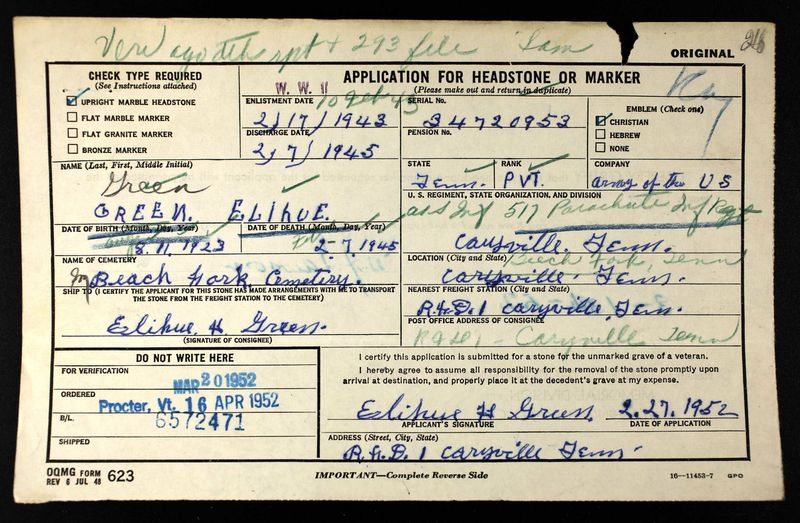 rpt + 293 file Sam
26
ORIGINAL
CHECK TYPE REQUIRED
(See Instructions attached)
UPRIGHT MARBLE HEADSTONE
FLAT MARBLE MARKER
FLAT GRANITE MARKER
BRONZE MARKER
W. W. II
APPLICATION FOR HEADSTONE OR MARKER
(Please make out and return in duplicate)
ENLISTMENT DATE 10 Feb 43
2/17/1943
DISCHARGE DATE
2/7/1945
SERIAL No.
34720953
PENSION No.
EMBLEM (Check one)
CHRISTIAN
HEBREW
NONE
Ray
NAME (Last, First, Middle Initial)
Green
GREEN. ELIHUE.
STATE
Tenn.
RANK
PVT.
COMPANY
Army of the US
U. S. REGIMENT, STATE ORGANIZATION, AND DIVISION
517 Parachute Inf Regt
Caryville, Tenn.
DATE OF BIRTH (Month, Day, Year)
8. 11. 1923
DATE OF DEATH (Month, Day, Year)
2-7. 1945
NAME OF CEMETERY
Beach Fork Cemetery.
LOCATION (City and State) Beech Fork, Tenn
Caryville. Tenn.
SHIP TO (I CERTIFY THE APPLICANT FOR THIS STONE HAS MADE ARRANGEMENTS WITH ME TO TRANSPORT THE STONE FROM THE FREIGHT STATION TO THE CEMETERY)
Eslihue H Green.
(SIGNATURE OF CONSIGNEE)
NEAREST FREIGHT STATION (City and State)
R.F.D. 1 Caryville, Tenn.
POST OFFICE ADDRESS OF CONSIGNEE
Rfd #1 - Caryville Tenn
DO NOT WRITE HERE
FOR VERIFICATION
MAR 20 1952
ORDERED
Procter, Vt. 16 APR 1952
B/L
6572471
SHIPPED
I certify this application is submitted for a stone for the unmarked grave of a veteran.
I hereby agree to assume all responsibility for the removal of the stone promptly upon arrival at destination, and properly place it at the decedent's grave at my expense.
Eslihue H Green. 2.27.1952
APPLICANT'S SIGNATURE
DATE OF APPLICATION
ADDRESS (Street, City, State)
R.F.D. 1 Caryville Tenn.
OQMG FORM
REV 6 JUL 48 623
IMPORTANT—Complete Reverse Side
16—11453-7 GPO